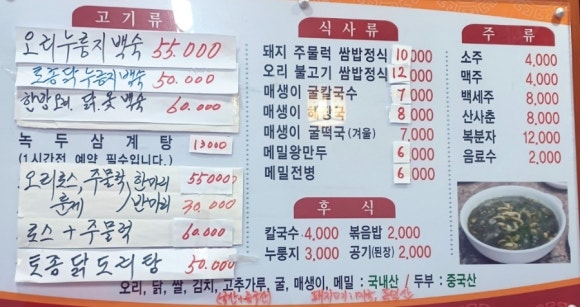 고 기 류
오리누룽지백숙 55.000
토종닭누룽지백숙 50.000
한방오리.닭.옻백숙 60.000
녹 두 삼 계 탕 13000
(1시간전 예약 필수입니다.)
오리로스, 주물럭, 한마리 55000
훈제 반마리 30.000
로스 + 주물럭 60.000
토종 닭 도리탕 50.000
식 사 류
돼지 주물럭 쌈밥정식 10,000
오리 불고기 쌈밥정식 12,000
매생이 굴칼국수 7,000
매생이 해장국 8,000
매생이 굴떡국(겨울) 7,000
메밀왕만두 6,000
메밀전병 6,000
후 식
칼국수 4,000 볶음밥 2,000
누룽지 3,000 공기(된장) 2,000
주 류
소주 4,000
맥주 4,000
백세주 8,000
산사춘 8,000
복분자 12,000
음료수 2,000
오리, 닭, 쌀, 김치, 고추가루, 굴, 매생이, 메밀 : 국내산 / 두부 : 중국산